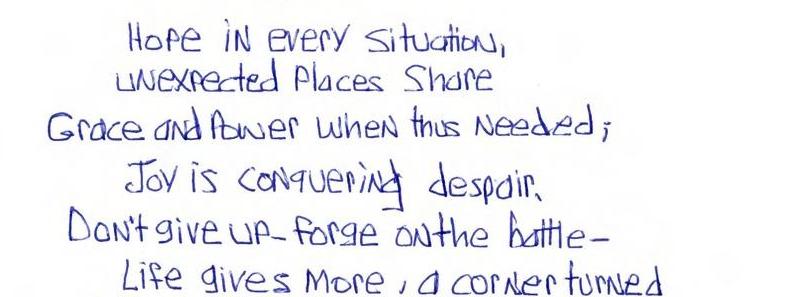 Hope in every situation,
unexpected places share
Grace and Power when thus needed;
Joy is conquering despair.
Don't give up - forge on the battle -
Life gives more, a corner turned